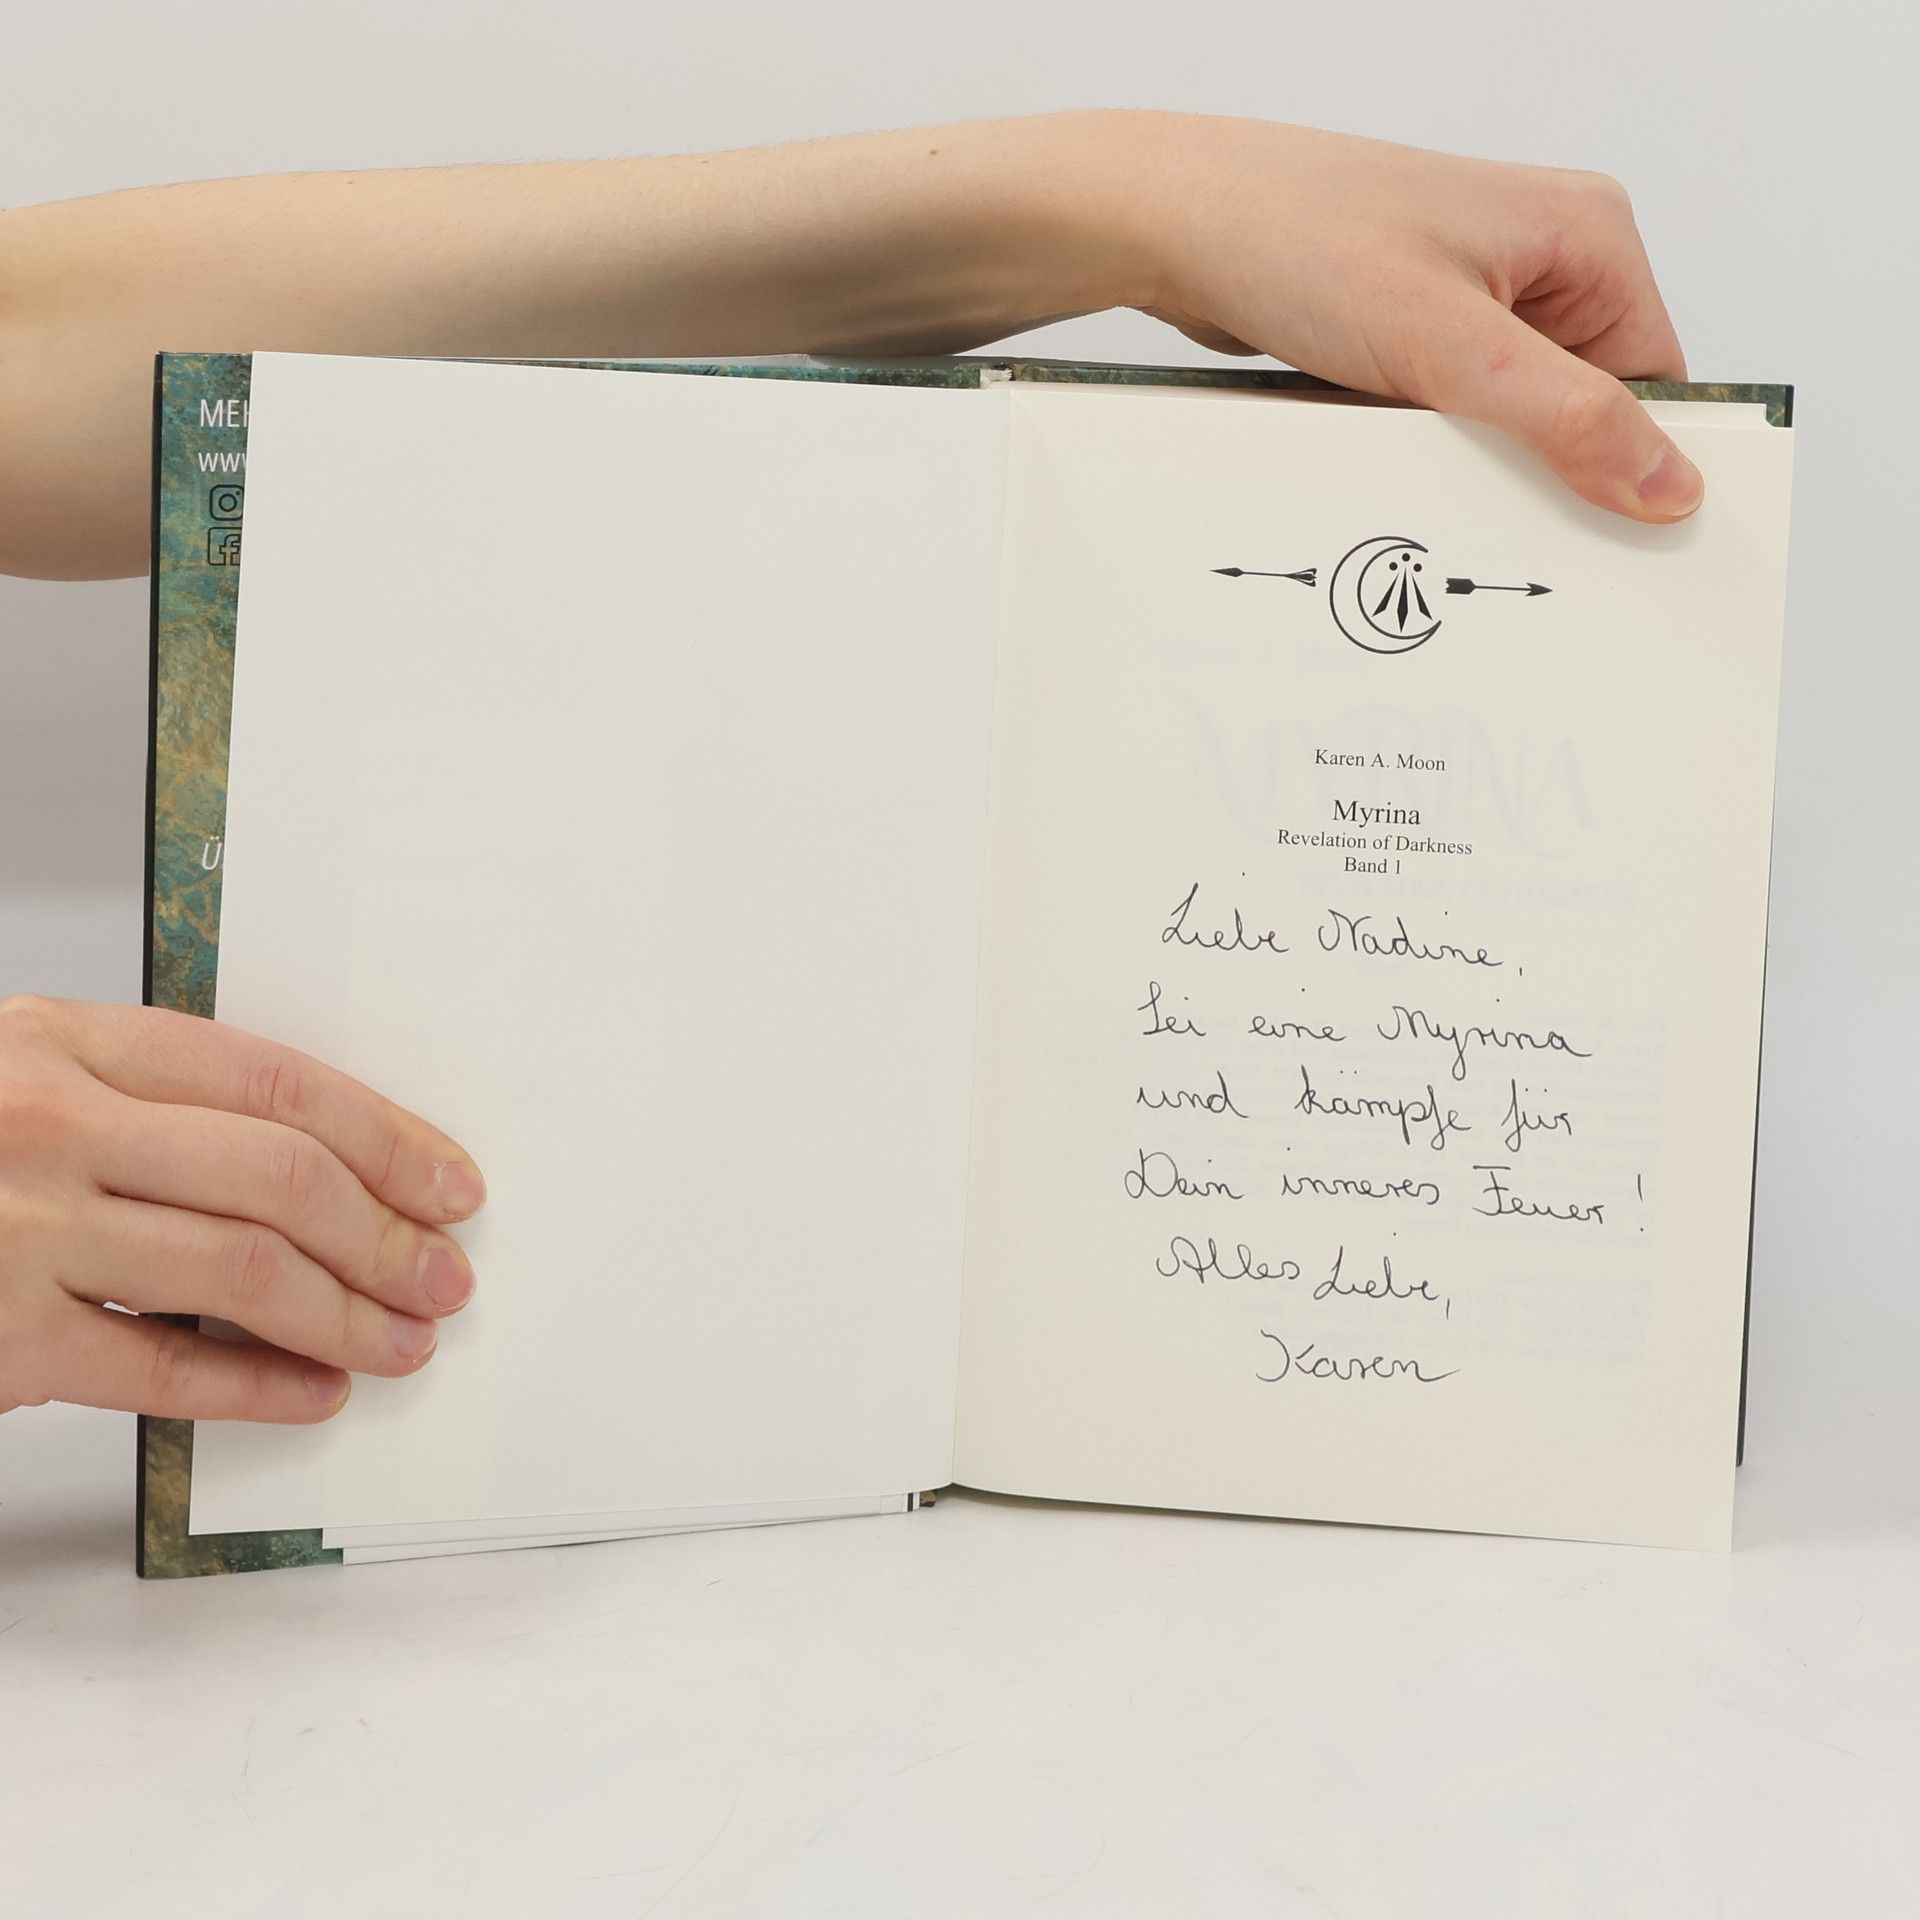 MEH
www
Karen A. Moon
Myrina
Revelation of Darkness
Band 1
Liebe Nadine,
Sei eine Myrina
und kämpfe für
Dein inneres Feuer!
Alles Liebe,
Karen